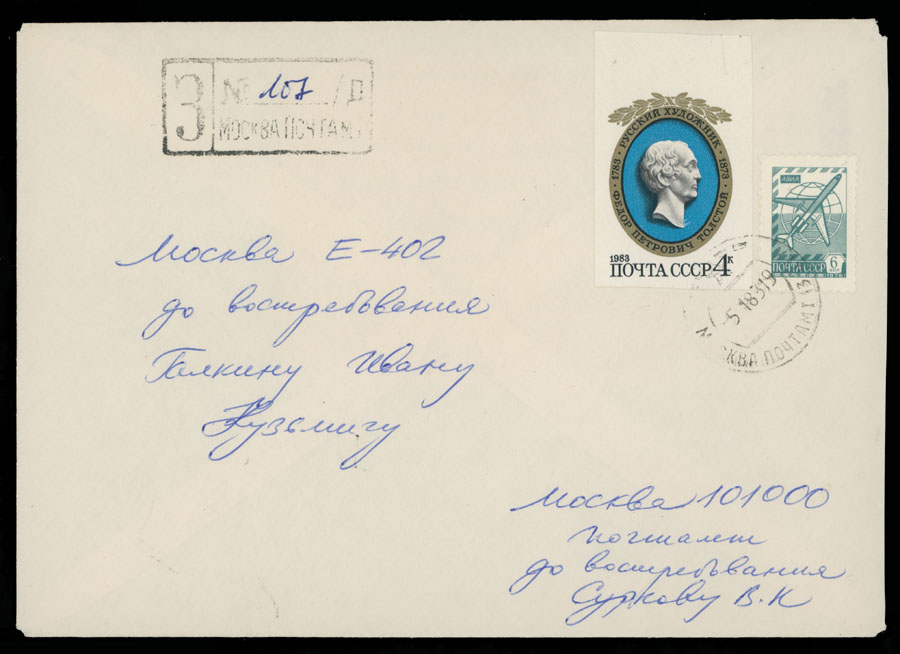 З № 107 / П
МОСКВА ПОЧТАМТ
1783 · РУССКИЙ ХУДОЖНИК · 1873
ФЕДОР ПЕТРОВИЧ ТОЛСТОЙ
1983
ПОЧТА СССР 4 к
АВИА
ПОЧТА СССР 6
МОСКВА ПОЧТАМТ
5 1 83 19
Москва Е-402
до востребования
Галкину Ивану
Кузьмичу
Москва 101000
почтамт
до востребования
Суркову В.К